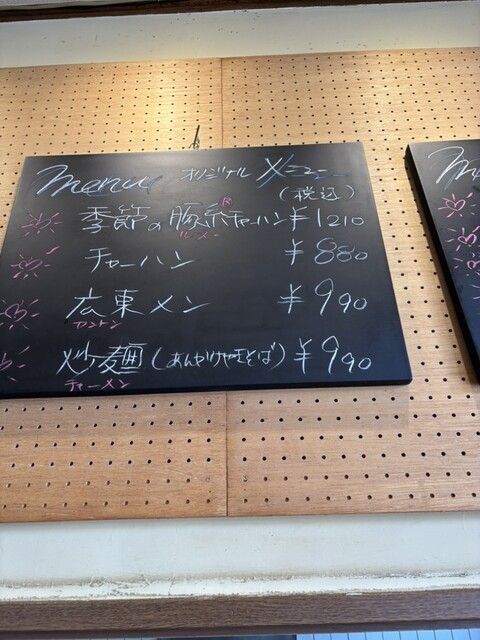 menu オリジナル メニュー
(税込)
季節の豚糸チャーハン ¥1210
ルースー
チャーハン ¥880
広東メン ¥990
カントン
炒麺(あんかけやきそば) ¥990
チャーメン